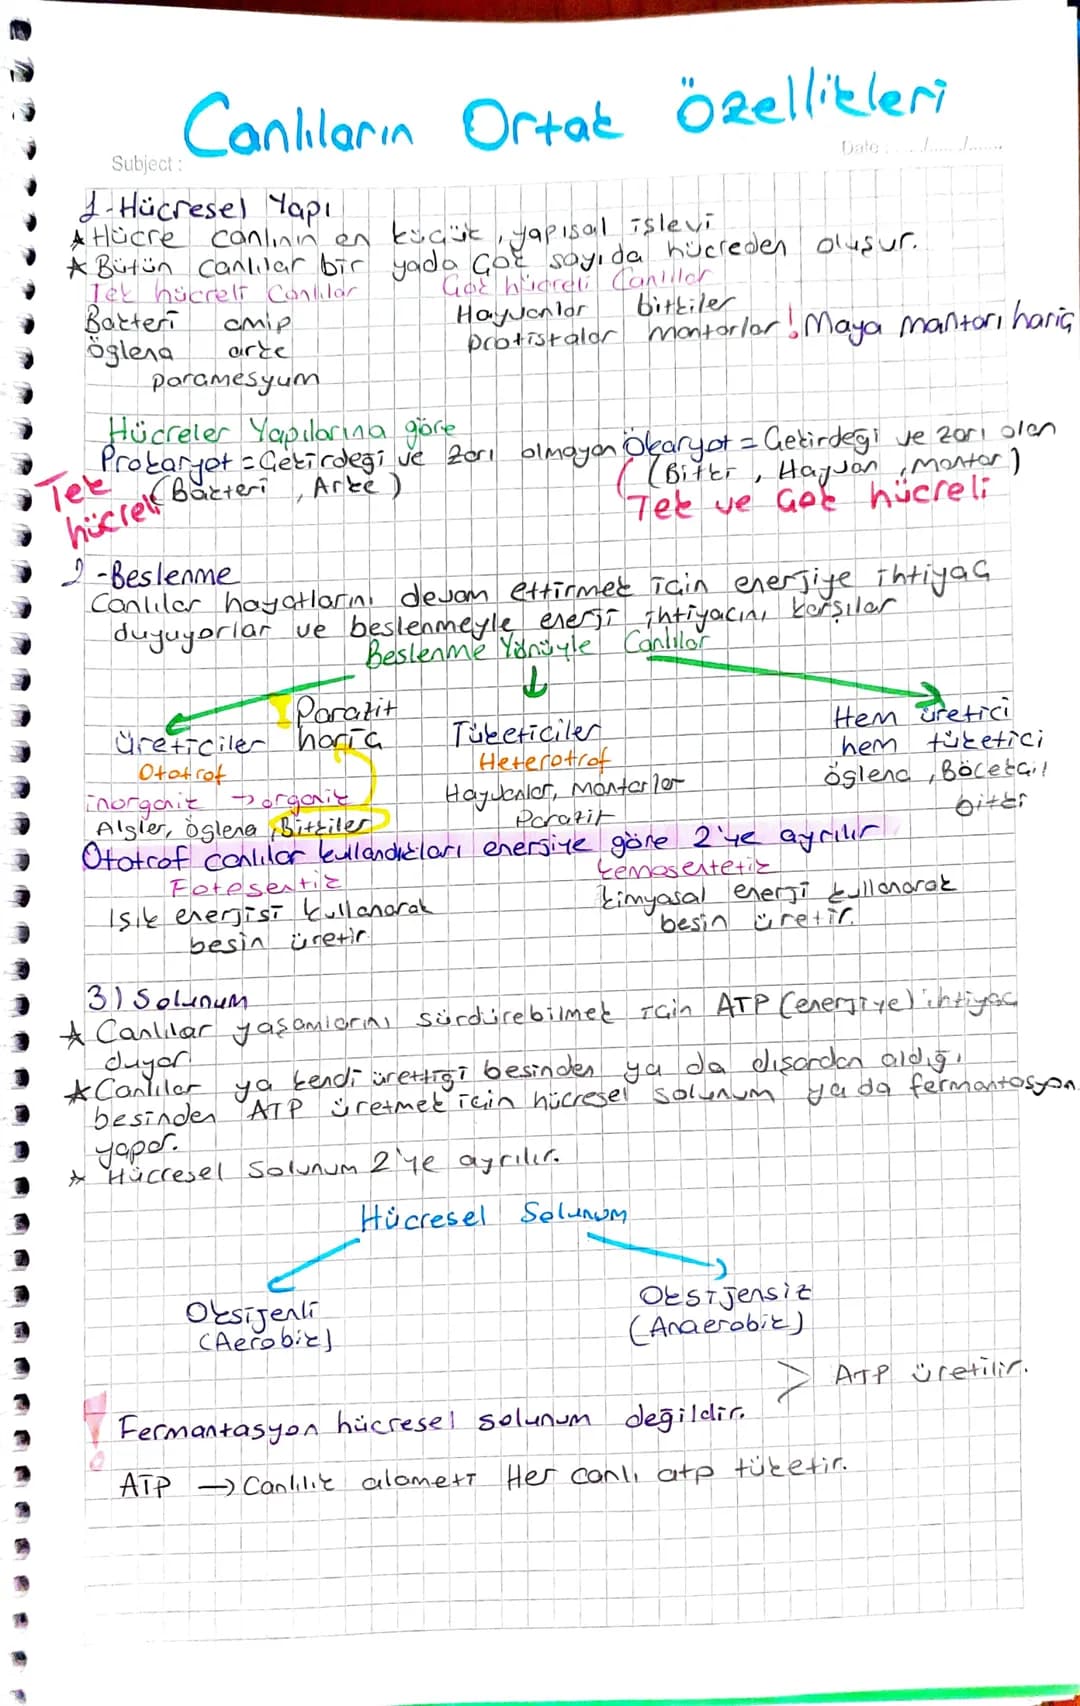 Canlıların Ortak Özellikleri
Subject :
Date : ..../..../....
1-Hücresel Yapı
★ Hücre canlının en küçük, yapısal işlevi
★ Bütün canlılar bir yada çok sayıda hücreden oluşur.
Tek hücreli Canlılar
Çok hücreli Canlılar
Bakteri amip
Hayvanlar bitkiler
öglena arke
protistalar mantarlar ! Maya mantarı hariç
paramesyum
Hücreler Yapılarına göre
Prokaryot = Çekirdeği ve zarı olmayan
Ökaryot = Çekirdeği ve zarı olan
(Bakteri, Arke)
(Bitki, Hayvan, Mantar)
Tek hücreli
Tek ve Çok hücreli
2-Beslenme
Canlılar hayatlarını devam ettirmek için enerjiye ihtiyaç
duyuyorlar ve beslenmeyle enerji ihtiyacını karşılar
Beslenme Yönüyle Canlılar
Parazit
hariç
Üreticiler
Ototrof
inorganik → organik
Algler, öglena, Bitkiler
Tüketiciler
Heterotrof
Hayvanlar, mantarlar
Parazit
Hem üretici
hem tüketici
öglena, Böcekçil
bitki
Ototrof canlılar kullandıkları enerjiye göre 2'ye ayrılır
Fotesentiz
Işık enerjisi kullanarak
besin üretir.
kemosentetik
kimyasal enerji kullanarak
besin üretir.
3) Solunum
★ Canlılar yaşamlarını sürdürebilmek için ATP (enerjiye) ihtiyaç
duyar.
★ Canlılar ya kendi ürettiği besinden ya da dışardan aldığı
besinden ATP üretmek için hücresel solunum ya da fermantasyon
yapar.
★ Hücresel Solunum 2'ye ayrılır.
Hücresel Solunum
Oksijenli
(Aerobik)
Oksijensiz
(Anaerobik)
> ATP üretilir.
! Fermantasyon hücresel solunum değildir.
ATP → Canlılık alameti Her canlı atp tüketir.